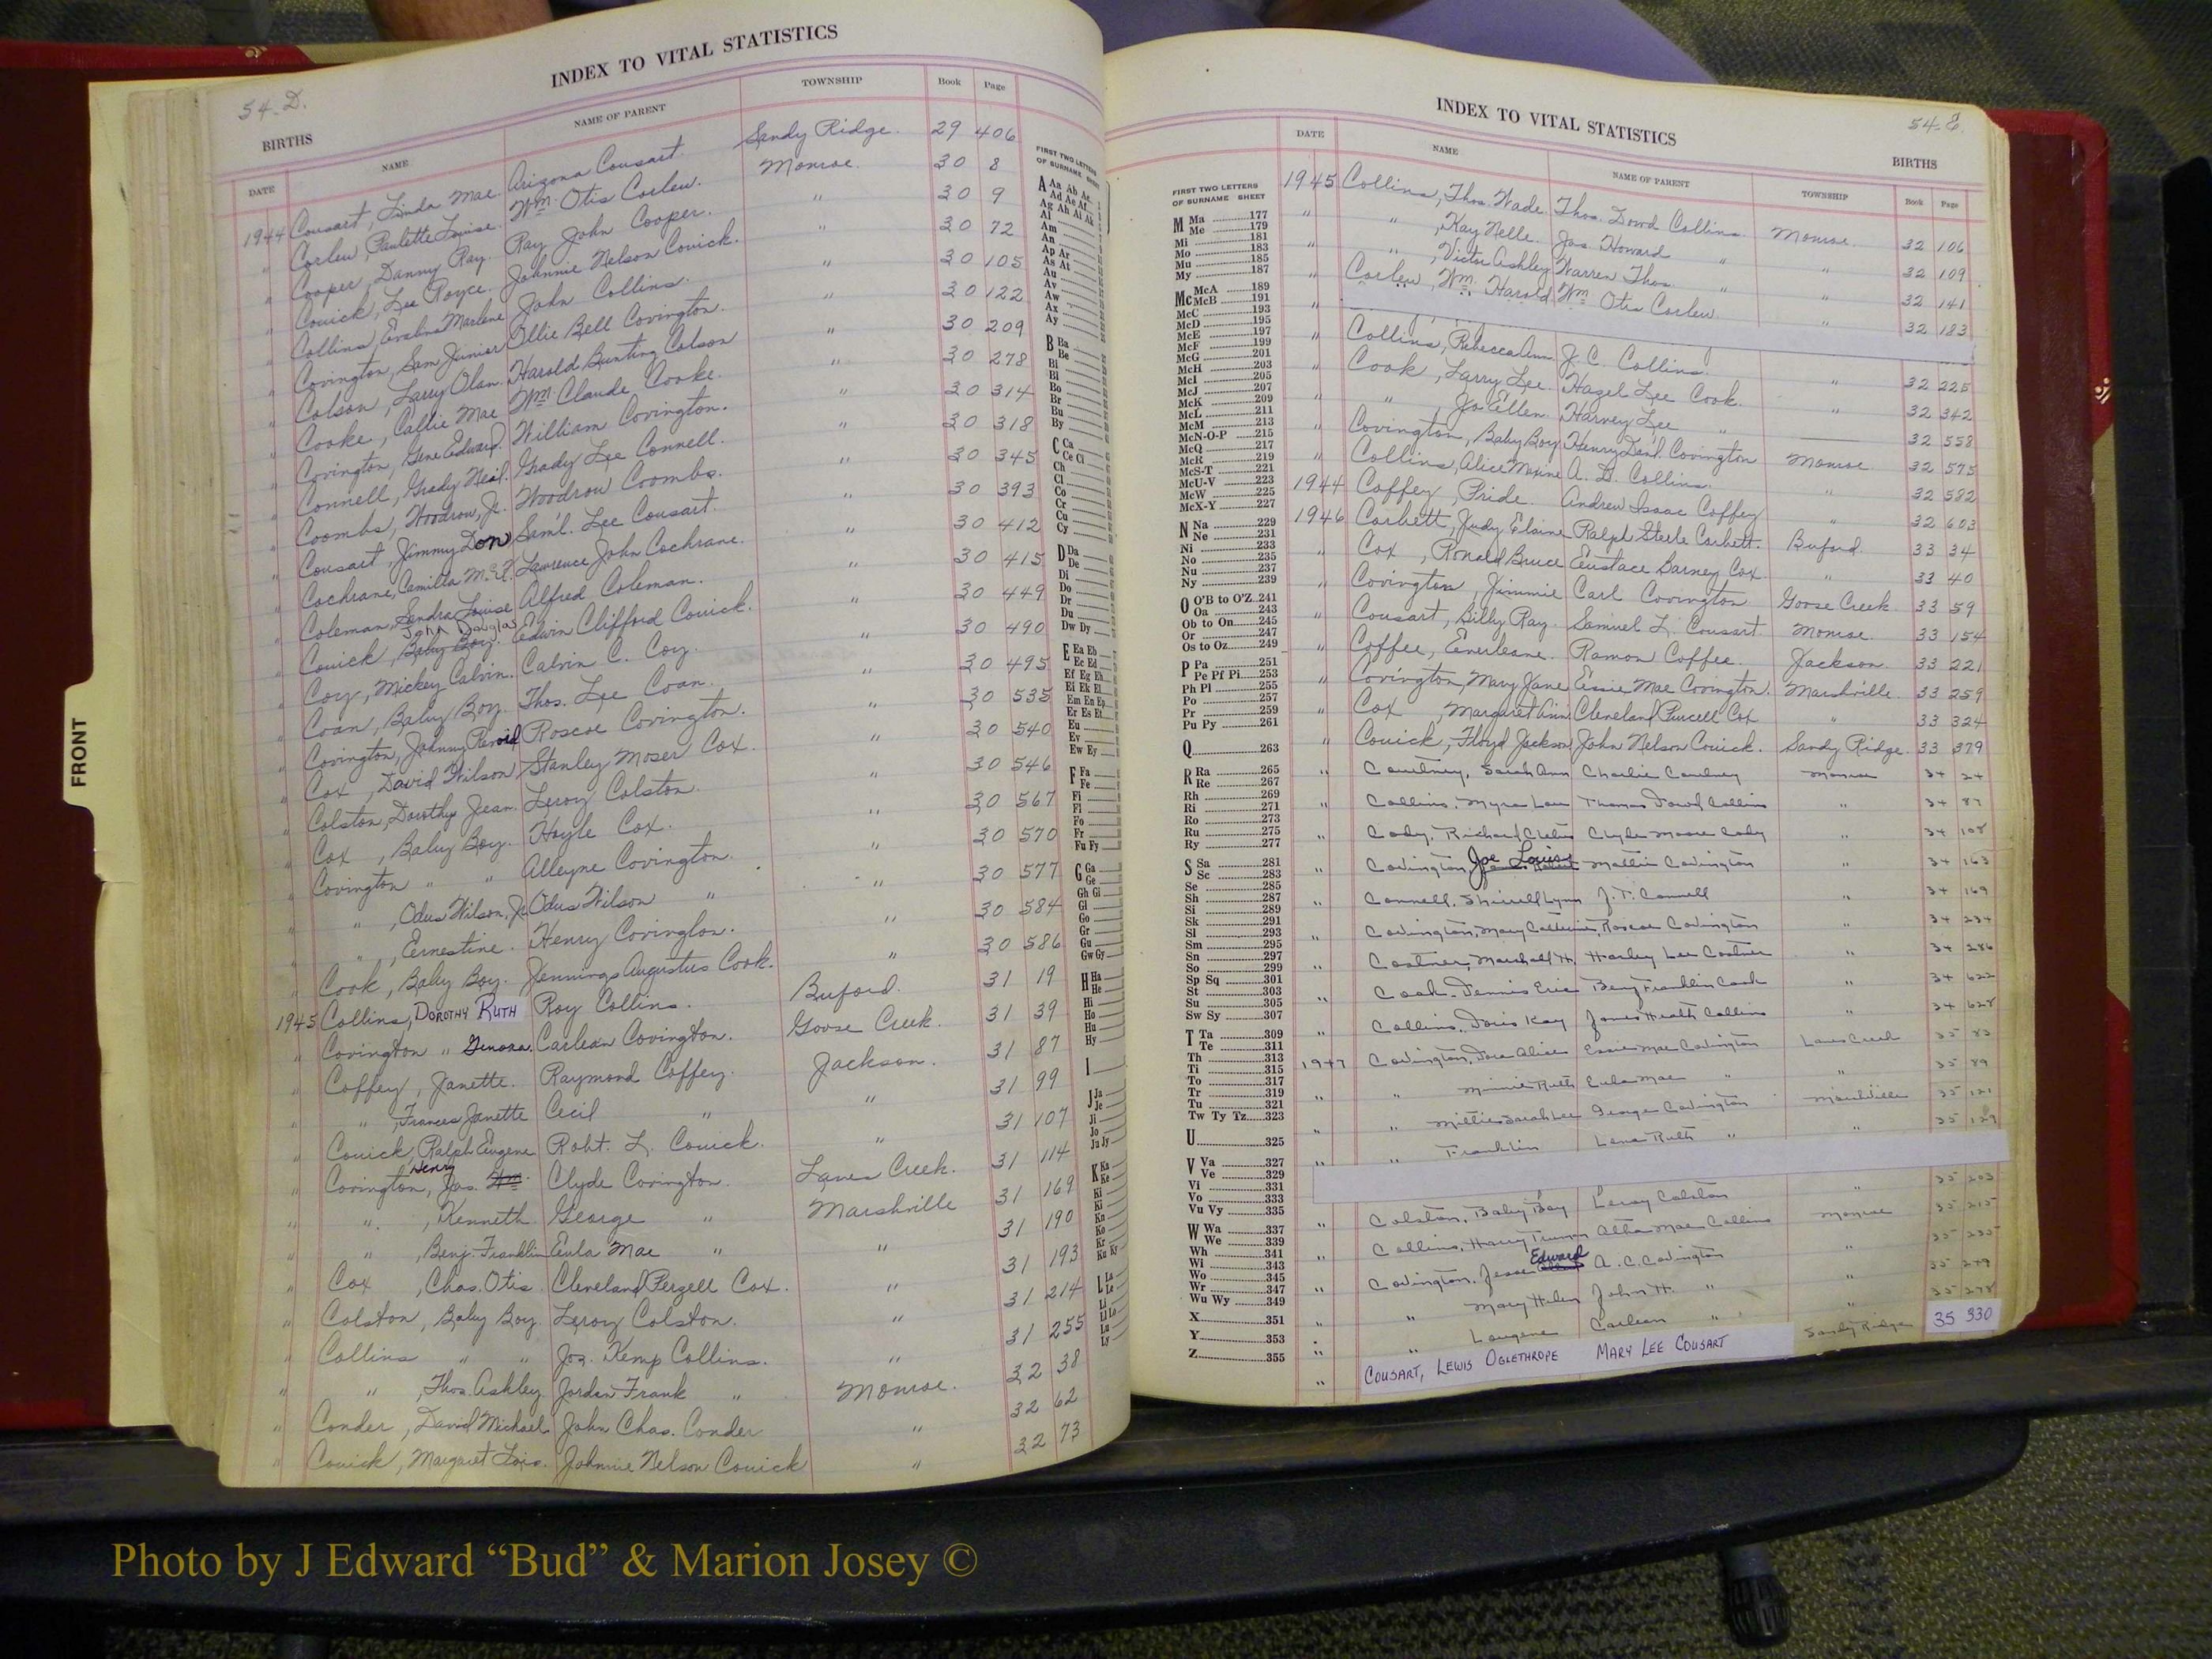 INDEX TO VITAL STATISTICS
54-D.
BIRTHS
DATE NAME NAME OF PARENT TOWNSHIP Book Page
1944 Cousart, Linda Mae. Arizona Cousart. Sandy Ridge. 29 406
" Corlew, Paulette Louise. Wm. Otis Corlew. Monroe. 30 8
" Cooper, Danny Ray. Ray John Cooper. " 30 9
" Couick, Lee Royce. Johnnie Nelson Couick. " 30 72
" Collins, Marlene John Collins. " 30 105
" Covington, Sam Junior Ollie Bell Covington. " 30 122
" Colson, Larry Olan. Harold Bunting Colson " 30 209
" Cooke, Callie Mae Wm. Claude Cooke. 30 278
" Covington, Gene Edward. William Covington. " 30 314
" Connell, Grady Neal. Grady Lee Connell. " 30 318
" Coombs, Woodrow, Jr. Woodrow Coombs. " 30 345
" Cousart, Jimmy Don Sam'l. Lee Cousart. " 30 393
" Cochrane, Camilla Lawrence John Cochrane. " 30 412
" Coleman, Sandra Louise Alfred Coleman. " 30 415
" Couick, Baby Boy. John Douglas Edwin Clifford Couick. " 30 449
" Coy, Mickey Calvin. Calvin C. Coy. " 30 490
" Coan, Baby Boy. Thos. Lee Coan. " 30 495
" Covington, Johnny Roscoe Covington. " 30 535
" Cox, David Wilson Stanley Moser Cox. " 30 540
" Colston, Dorothy Jean. Leroy Colston. " 30 546
" Cox, Baby Boy. Hoyle Cox. " 30 567
" Covington " " Alleyne Covington. " 30 570
" " , Odus Wilson, Jr. Odus Wilson " " 30 577
" " , Ernestine. Henry Covington. " 30 584
" Cook, Baby Boy. Jennings Augustus Cook. " 30 586
1945 Collins, DOROTHY RUTH Roy Collins. Buford. 31 19
" Covington " Genora. Carlean Covington. Goose Creek. 31 39
" Coffey, Janette. Raymond Coffey. Jackson. 31 87
" " , Frances Janette Cecil " " 31 99
" Couick, Ralph Eugene Robt. L. Couick. " 31 107
" Covington, Jas. Henry Clyde Covington. Lanes Creek. 31 114
" " , Kenneth. George " Marshville 31 169
" " , Benj. Franklin Eula Mae " " 31 190
" Cox, Chas. Otis. Cleveland Perzell Cox. " 31 193
" Colston, Baby Boy. Leroy Colston. " 31 214
" Collins " " Jos. Kemp Collins. " 31 255
" " , Thos. Ashley. Jordan Frank " Monroe. 32 38
" Conder, David Michael John Chas. Conder " 32 62
" Couick, Margaret Lois. Johnnie Nelson Couick " 32 73
FIRST TWO LETTERS
OF SURNAME SHEET
A Aa Ab Ac
Ad Ae Af
Ag Ah Ai Ak
Al
Am
An
Ap Ar
As At
Au
Av
Aw
Ax
Ay
B Ba
Be
Bi
Bl
Bo
Br
Bu
By
C Ca
Ce Ci
Ch
Cl
Co
Cr
Cu
Cy
D Da
De
Di
Do
Dr
Du
Dw Dy
E Ea Eb
Ec Ed
Ef Eg Eh
Ei Ek El
Em En Ep
Er Es Et
Eu
Ev
Ew Ey
F Fa
Fe
Fi
Fl
Fo
Fr
Fu Fy
G Ga
Ge
Gh Gi
Gl
Go
Gr
Gu
Gw Gy
H Ha
He
Hi
Ho
Hu
Hy
I
J Ja
Je
Ji
Jo
Ju Jy
K Ka
Ke
Ki
Kl
Kn
Ko
Kr
Ku Ky
L La
Le
Li
Ll Lo
Lu
Ly
FRONT
INDEX TO VITAL STATISTICS
54-E.
BIRTHS
DATE NAME NAME OF PARENT TOWNSHIP Book Page
FIRST TWO LETTERS
OF SURNAME SHEET
M Ma 177
Me 179
Mi 181
Mo 183
Mu 185
My 187
Mc McA 189
McB 191
McC 193
McD 195
McE 197
McF 199
McG 201
McH 203
McI 205
McJ 207
McK 209
McL 211
McM 213
McN-O-P 215
McQ 217
McR 219
McS-T 221
McU-V 223
McW 225
McX-Y 227
N Na 229
Ne 231
Ni 233
No 235
Nu 237
Ny 239
O O'B to O'Z 241
Oa 243
Ob to On 245
Or 247
Os to Oz 249
P Pa 251
Pe Pf Pi 253
Ph Pl 255
Po 257
Pr 259
Pu Py 261
Q 263
R Ra 265
Re 267
Rh 269
Ri 271
Ro 273
Ru 275
Ry 277
S Sa 281
Sc 283
Se 285
Sh 287
Si 289
Sk 291
Sl 293
Sm 295
Sn 297
So 299
Sp Sq 301
St 303
Su 305
Sw Sy 307
T Ta 309
Te 311
Th 313
Ti 315
To 317
Tr 319
Tu 321
Tw Ty Tz 323
U 325
V Va 327
Ve 329
Vi 331
Vo 333
Vu Vy 335
W Wa 337
We 339
Wh 341
Wi 343
Wo 345
Wr 347
Wu Wy 349
X 351
Y 353
Z 355
1945 Collins, Thos. Wade. Thos. Dowd Collins. Monroe. 32 106
" " , Kay Nelle. Jas. Howard " " 32 109
" " , Victor Ashley Warren Thos. " " 32 141
" Corlew, Wm. Harold Wm. Otis Corlew. " 32 183
" Collins, Rebecca Ann. J. C. Collins. " 32 225
" Cook, Larry Lee. Hazel Lee Cook. " 32 342
" " , Jo Ellen. Harvey Lee " 32 558
" Covington, Baby Boy Henry Dan'l. Covington Monroe. 32 575
" Collins, Alice Maxine A. D. Collins. " 32 582
1944 Coffey, Pride. Andrew Isaac Coffey " 32 603
1946 Corbett, Judy Elaine Ralph Steele Corbett. Buford. 33 34
" Cox, Ronald Bruce Eustace Barney Cox. " 33 40
" Covington, Jimmie Carl Covington Goose Creek. 33 59
" Cousart, Billy Ray. Samuel L. Cousart. Monroe. 33 154
" Coffee, Enerleane. Ramon Coffee. Jackson. 33 221
" Covington, Mary Jane Essie Mae Covington. Marshville. 33 259
" Cox, Margaret Ann Cleveland Purcell Cox " 33 324
" Couick, Floyd Jackson John Nelson Couick. Sandy Ridge. 33 379
" Courtney, Sarah Ann Charlie Courtney Monroe 34 24
" Collins, Myra Lou Thomas Dowd Collins " 34 87
" Cody, Richard Clyde Moore Cody " 34 108
" Covington, Joe Louis Mattie Covington " 34 163
" Connell, Shirrell Lynn J. T. Connell " 34 169
" Covington, Mary Catherine, Roscoe Covington " 34 234
" Costner, Marshall H. Harley Lee Costner " 34 286
" Cook, Dennis Eric Benj Franklin Cook " 34 622
" Collins, Doris Kay James Heath Collins " 34 628
1947 Covington, Dora Alice Essie Mae Covington Lanes Creek 35 83
" " Minnie Ruth Eula Mae " " 35 89
" " Millie Sarah Lee George Covington Marshville 35 121
" " Franklin Lena Ruth " " 35 129
" Colston, Baby Boy Leroy Colston " 35 203
" Collins, Harry Truman Altha Mae Collins Monroe 35 215
" Covington, Jesse Edward A. C. Covington " 35 235
" " Mary Helen John H. " " 35 249
" " Laugene Carlean " " 35 278
" COUSART, LEWIS OGLETHROPE MARY LEE COUSART Sandy Ridge 35 330
Photo by J Edward “Bud” & Marion Josey ©